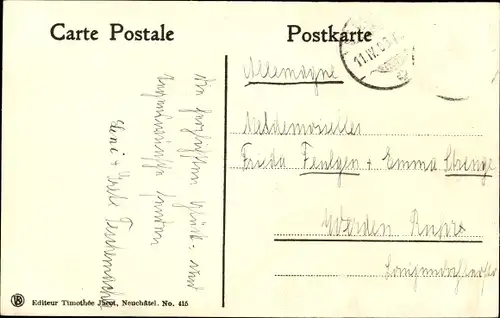 Carte Postale
Postkarte
11.IV.
Allemagne
Mademoiselles
Frieda Feulgen + Emma Stange
Werden Ruhr
Die herzlichsten Glück- und
Segenswünsche senden
Leni +
Editeur Timothée Jacot, Neuchâtel. No. 415